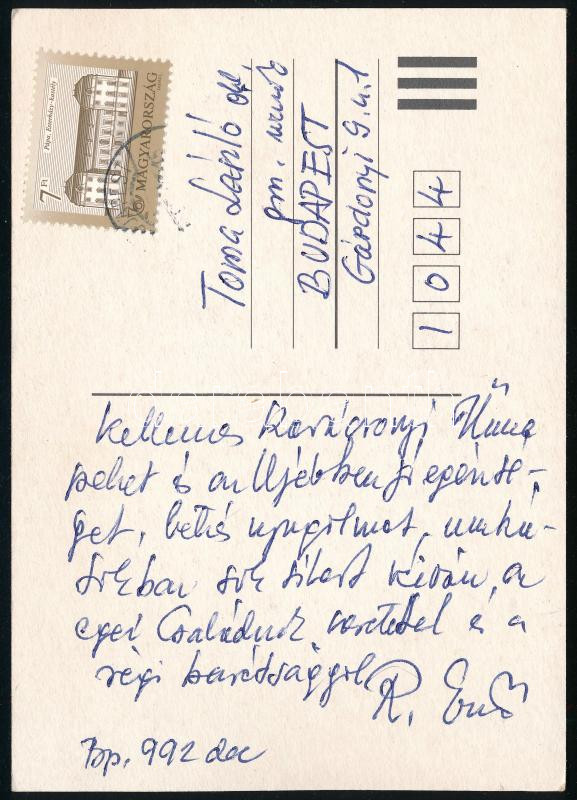 Pápa, Esterházy-kastély
7 Ft
MAGYARORSZÁG
Toma László okl.
BUDAPEST
Gárdonyi 9. u. 1
1044
Kellemes Karácsonyi Ünne
peket és az Újévben jó egészsé-
get, békés nyugalmat, munká-
sokban sok sikert kíván, az
egész Családnak szeretettel és a
régi barátsággal
R. Ernő
Bp. 992 dec